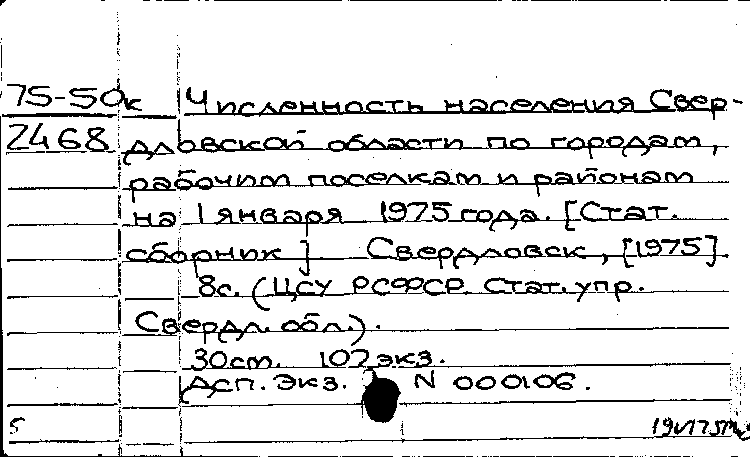 75-50к Численность населения Свер-
2468 дловской области по городам,
рабочим поселкам и районам
на 1 января 1975 года. [Стат.
сборник]. Свердловск, [1975].
8с. (ЦСУ РСФСР. Стат. упр.
Свердл. обл.).
30см. 107 экз.
ДСП. Экз. N 000106.
5